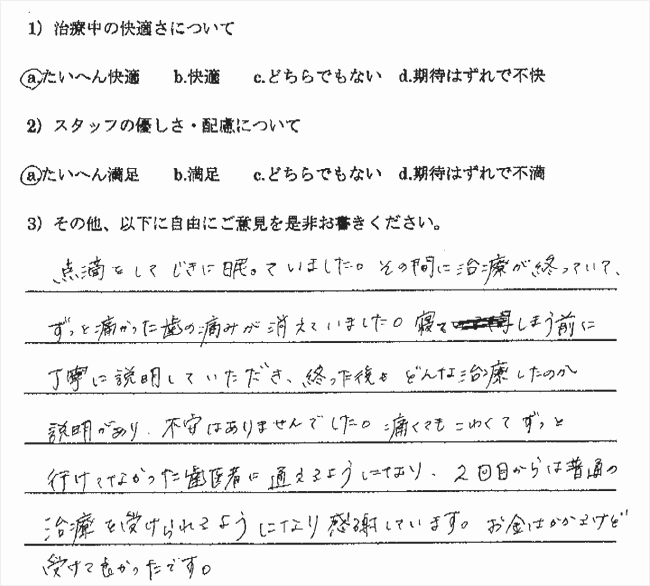 1）治療中の快適さについて
a.たいへん快適　b.快適　c.どちらでもない　d.期待はずれで不快
2）スタッフの優しさ・配慮について
a.たいへん満足　b.満足　c.どちらでもない　d.期待はずれで不満
3）その他、以下に自由にご意見を是非お書きください。
点滴をしてじきに眠っていました。その間に治療が終っていて、
ずっと痛かった歯の痛みが消えていました。寝てしまう前に
丁寧に説明していただき、終った後もどんな治療したのか
説明があり、不安はありませんでした。痛くてもこわくてずっと
行けてなかった歯医者に通えるようになり、2回目からは普通の
治療を受けられるようになり感謝しています。お金はかかるけど
受けて良かったです。